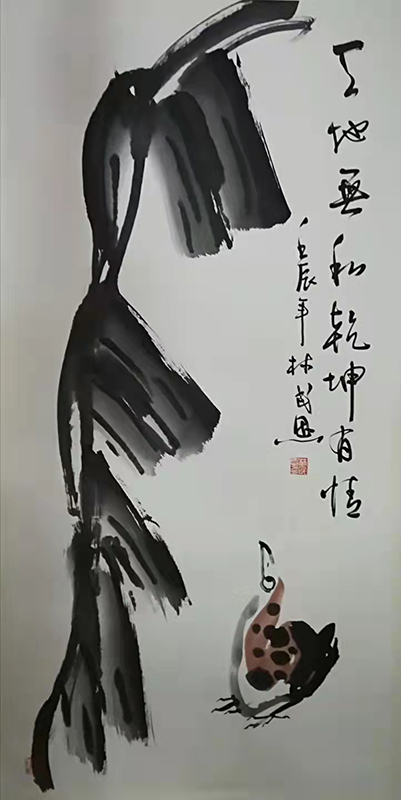 天地無私乾坤有情
壬辰年林武恩